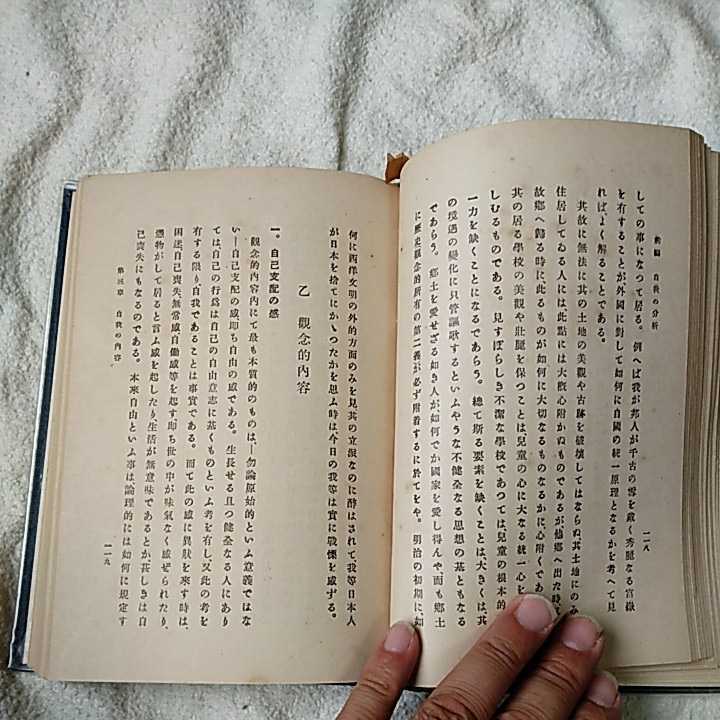 前編 自我の分析
一一八
しての事になつて居る。例へば我が邦人が千古の雪を戴く秀麗なる富嶽
を有することが外國に對して如何に自國の統一原理となるかを考へて見
ればよく解ることである。
其故に無法に其の土地の美觀や古跡を破壞してはならぬ其土地にのみ
住居してゐる人には此點には大概心附かぬものであるが他郷へ出た時
故郷へ歸る時に此るものが如何に大切なるものなるかに心附くであ
其の居る學校の美觀や壯麗を保つことは兒童の心に大なる統一心を
しむるものである。見すぼらしき不潔な學校であつては、兒童の根本的
一力を缺くことになるであらう。總て斯る要素を缺くことは、大きくは、其
の境遇の變化に只管謳歌するといふやうな不健全なる思想の基ともなる
であらう。郷土を愛せざる如き人が、如何でか國家を愛し得んや、而も郷土
に歴史觀念的所有の第二義が必ず附着するに於てをや。明治の初期に、如
何に西洋文明の外的方面のみを見其の立派なのに醉はされて我等日本人
が日本を捨てにかゝつたかを思ふ時は今日の我等は實に戰慄を感ずる。
乙 觀念的內容
一。自己支配の感
觀念的內容內にて最も本質的のものは、―勿論原始的といふ意義ではな
い―自己支配の感卽ち自由の感である。生長せる且つ健全なる人にあり
ては、自己の行爲は自己の自由意志に基くものといふ考を有し、又此の考を
有する限り自我であることは事實である。而て此の感に異狀を來す時は、
困迷自己喪失無常感自働感等を起す卽ち世の中が味氣なく感ぜられたり、
憑物がして居ると言ふ感を起したり生活が無意味であるとか甚しきは自
己喪失にもなるのである。本來自由といふ事は論理的には如何に規定す
第三章 自我の內容
一一九